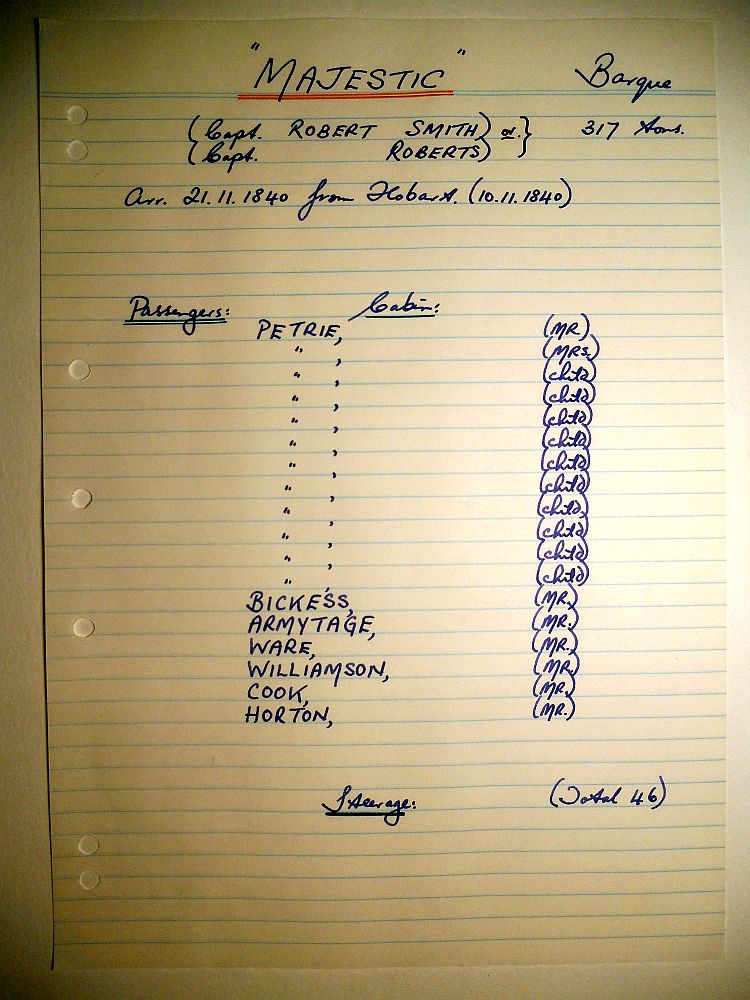 "MAJESTIC" Barque
(Capt. ROBERT SMITH) or.} 317 tons.
(Capt. ROBERTS)
Arr. 21.11.1840 from Hobart. (10.11.1840)
Passengers: Cabin:
PETRIE, (MR.)
" , (MRS.)
" , (child)
" , (child)
" , (child)
" , (child)
" , (child)
" , (child)
" , (child)
" , (child)
" , (child)
" , (child)
BICKESS, (MR.)
ARMYTAGE, (MR.)
WARE, (MR.)
WILLIAMSON, (MR.)
COOK, (MR.)
HORTON, (MR.)
Steerage: (Total 46)